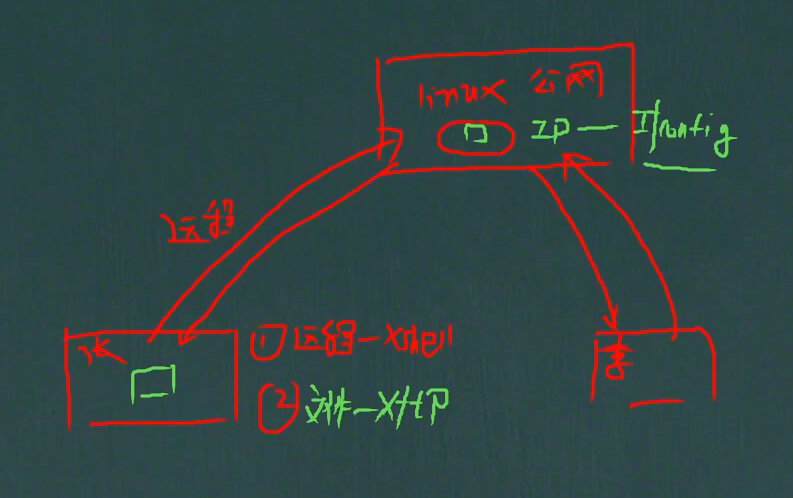 linux 公网
IP — Ifconfig
远程
张
① 远程 — Xshell
② 文件 — XftP
李